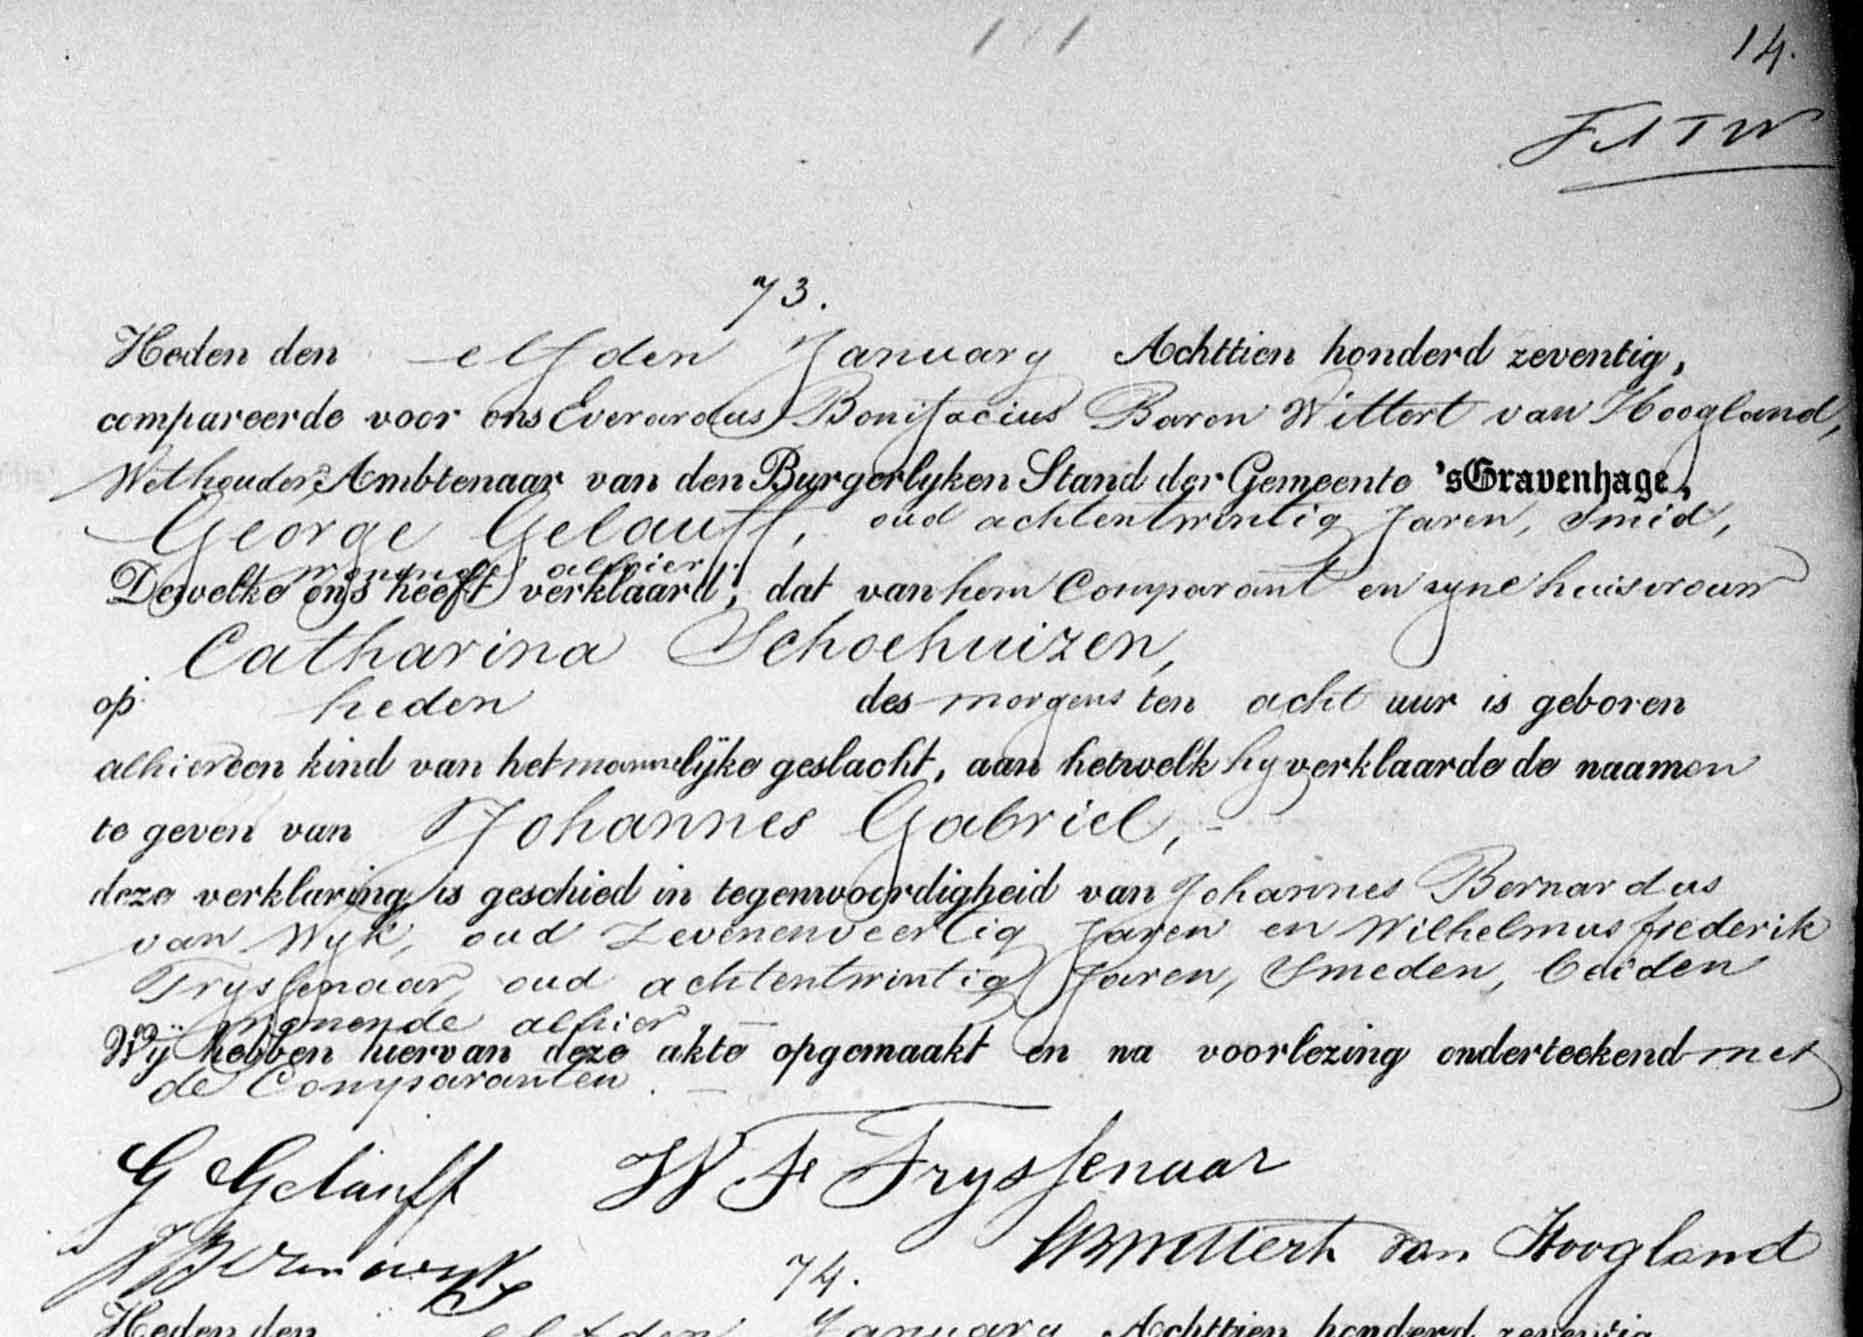 14.
73.
Heden den elfden January Achttien honderd zeventig,
compareerde voor ons Everardus Bonifacius Baron Wittert van Hoogland,
Wethouder, Ambtenaar van den Burgerlyken Stand der Gemeente 'sGravenhage,
George Gelauff, oud achtentwintig Jaren, Smid,
wonende alhier.
Dewelke ons heeft verklaard, dat van hem Comparant en zyne huisvrouw
Catharina Schoehuizen,
op heden des morgens ten acht uur is geboren
alhier een kind van het mannelijke geslacht, aan hetwelk hy verklaarde de naamen
te geven van Johannes Gabriel,
deze verklaring is geschied in tegenwoordigheid van Johannes Bernardus
van Wyk, oud Zevenenveertig Jaren en Wilhelmus frederik
Tryssenaar, oud achtentwintig Jaren, Smeden, beiden
wonende alhier
Wij hebben hiervan deze akte opgemaakt en na voorlezing onderteekend met
de Comparanten.
G Gelauff W F Tryssenaar
J B van Wyk Wittert van Hoogland
74.
Heden den elfden January Achttien honderd zeventig